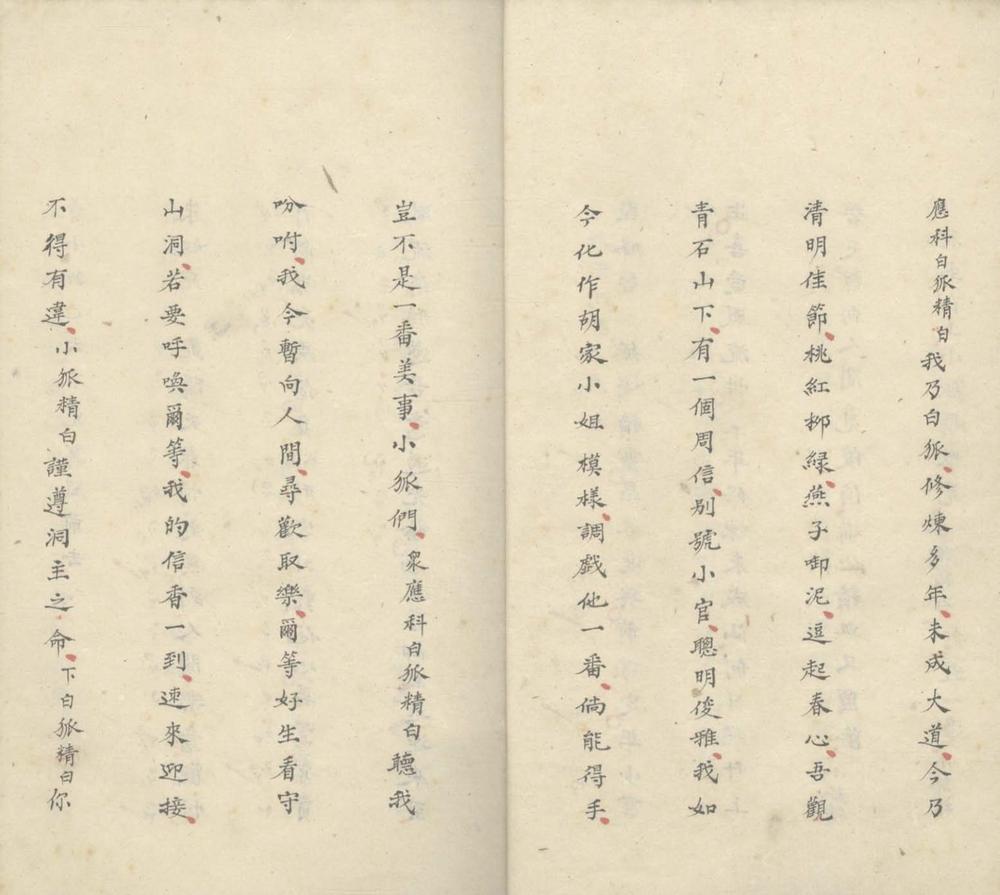 應科白狐精白我乃白狐、修煉多年、未成大道、今乃
清明佳節、桃紅柳緑、燕子啣泥、逗起春心、吾觀
青石山下、有一個周信、別號小官、聰明俊雅、我如
今化作胡家小姐模樣、調戲他一番、倘能得手、
豈不是一番美事、小狐們、衆應科白狐精白聽我
吩咐、我今暫向人間、尋歡取樂、爾等好生看守
山洞、若要呼喚爾等、我的信香一到、速來迎接、
不得有違、小狐精白謹遵洞主之命、下白狐精白你